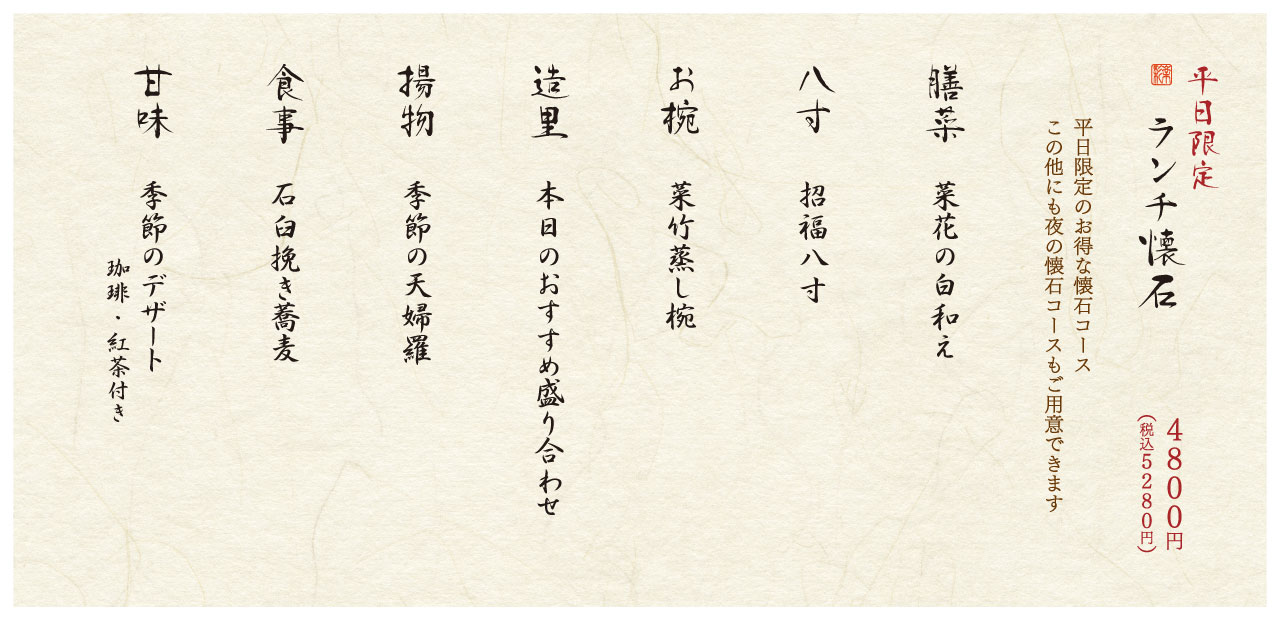 平日限定
ランチ懐石
4800円
(税込5280円)
平日限定のお得な懐石コース
この他にも夜の懐石コースもご用意できます
膳菜 菜花の白和え
八寸 招福八寸
お椀 菜竹蒸し椀
造里 本日のおすすめ盛り合わせ
揚物 季節の天婦羅
食事 石臼挽き蕎麦
甘味 季節のデザート
珈琲・紅茶付き